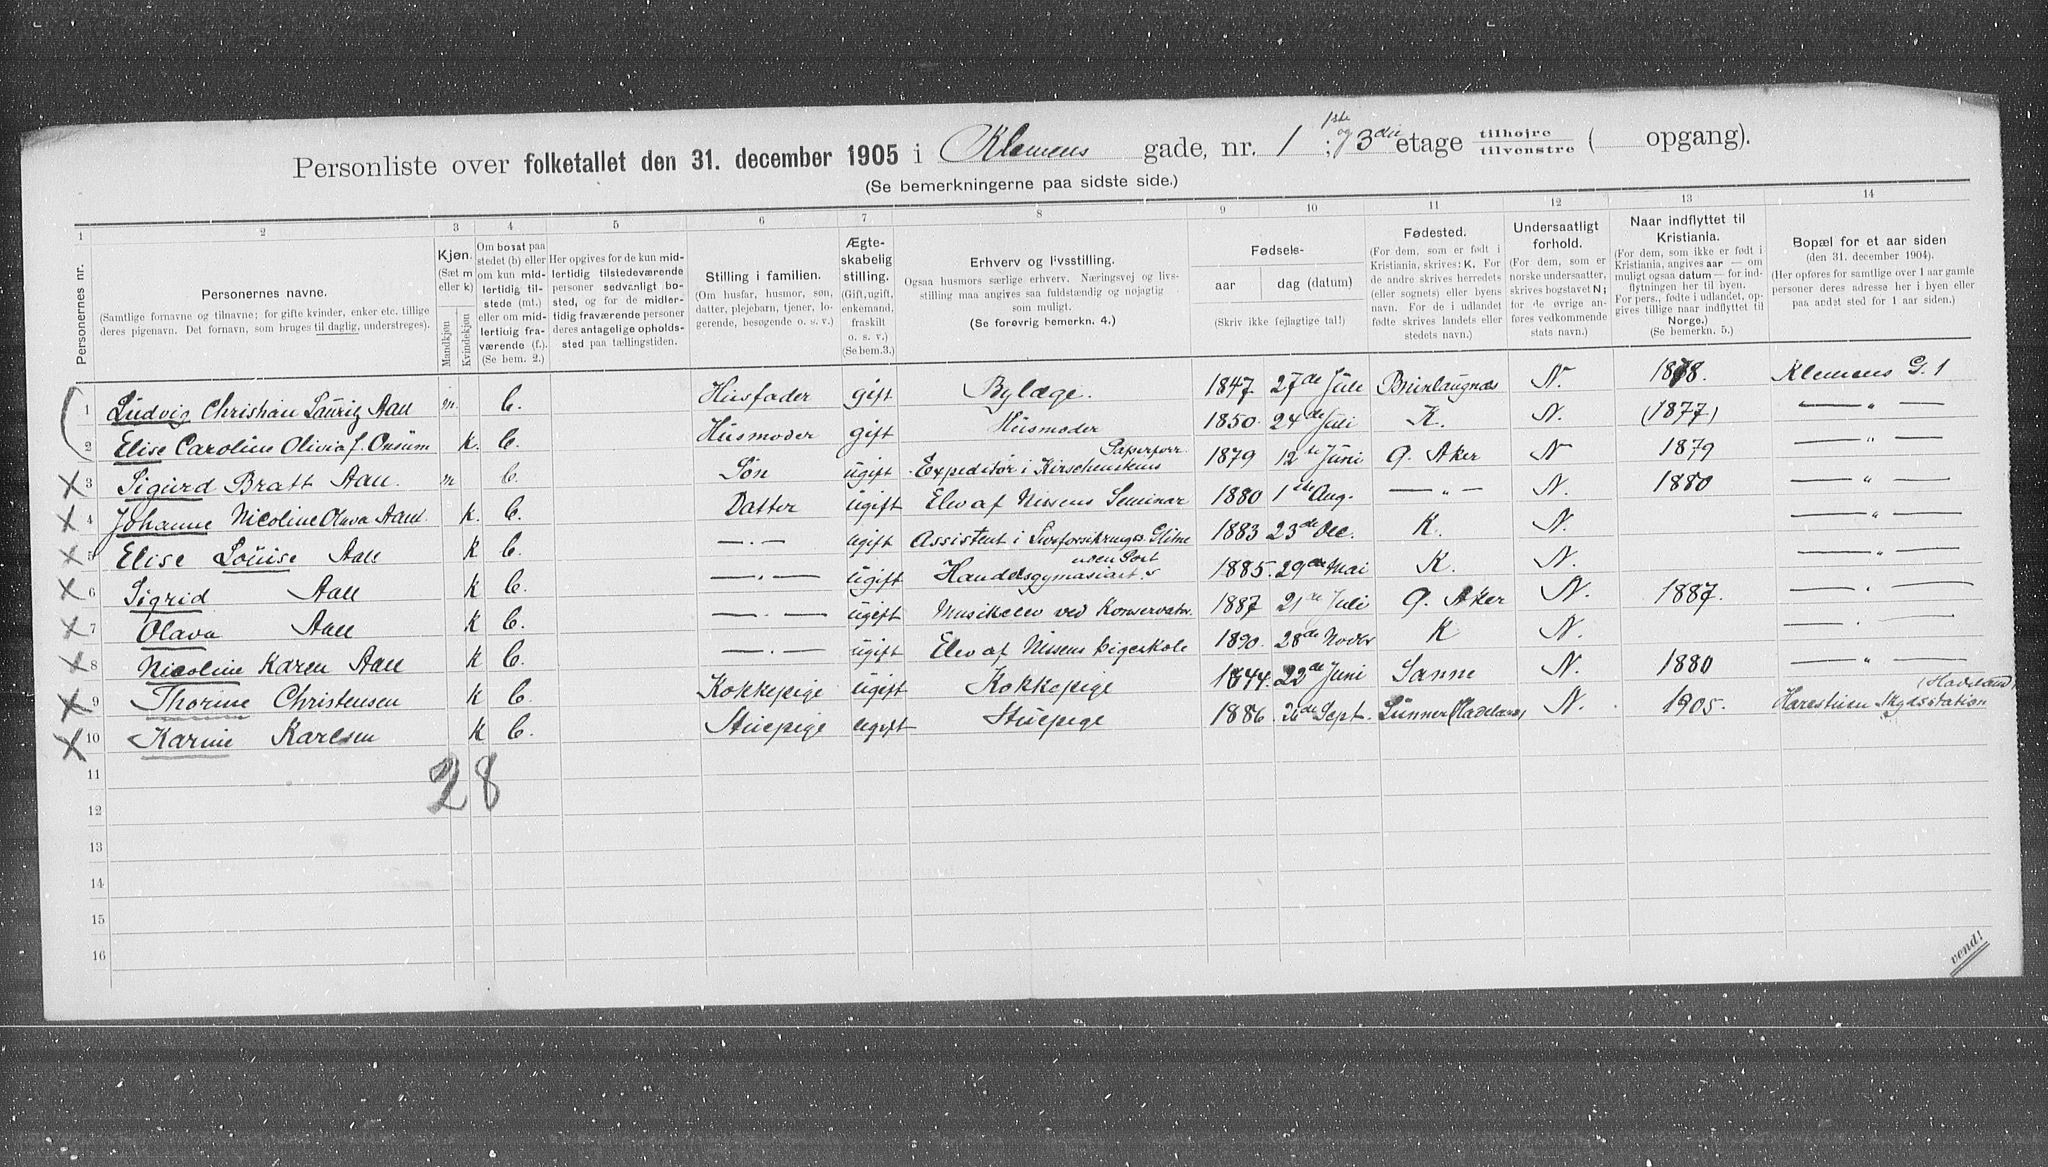 Personliste over folketallet den 31. december 1905 i Klemens gade, nr. 1 ; 1ste og 3die etage tilhøjre tilvenstre ( opgang).
(Se bemerkningerne paa sidste side.)
1 2 3 4 5 6 7 8 9 10 11 12 13 14
Personernes nr.
Personernes navne.
(Samtlige fornavne og tilnavne; for gifte kvinder, enker etc. tillige
deres pigenavn. Det fornavn, som bruges til daglig, understreges).
Kjøn.
(Sæt m
eller k)
Mandkjøn
Kvindekjøn
Om bosat paa
stedet (b) eller
om kun midlertidig
tilstede (mt.)
eller om midlertidig
fraværende (f.).
(Se bem. 2.)
Her opgives for de kun midlertidig
tilstedeværende
personer sedvanligt bosted,
og for de midlertidig
fraværende personer
deres antagelige opholdssted
paa tællingstiden.
Stilling i familien.
(Om husfar, husmor, søn,
datter, plejebarn, tjener, logerende,
besøgende o. s. v.)
Ægteskabelig
stilling.
(Gift, ugift,
enkemand,
fraskilt
o. s. v.)
(Se bem. 3.)
Erhverv og livsstilling.
Ogsaa husmors særlige erhverv. Næringsvej og livsstilling
maa angives saa fuldstændig og nøjagtig
som muligt.
(Se forøvrig bemerkn. 4.)
Fødsels-
aar
dag (datum)
(Skriv ikke fejlagtige tal!)
Fødested.
(For dem, som er født i
Kristiania, skrives: K. For
de andre skrives herredets
(eller sognets) eller byens
navn. For de i udlandet
fødte skrives landets eller
stedets navn.)
Undersaatligt
forhold.
(For dem, som er
norske undersaatter,
skrives bogstavet N;
for de øvrige anføres
vedkommende
stats navn.)
Naar indflyttet til
Kristiania.
(For dem, som ikke er født i
Kristiania, angives aar — om
muligt ogsaa datum — for indflytningen
her til byen.
For pers., fødte i udlandet, opgives
tillige naar indflyttet til
Norge.)
(Se bemerkn. 5.)
Bopæl for et aar siden
(den 31. december 1904).
(Her opføres for samtlige over 1 aar gamle
personer deres adresse her i byen eller
paa andet sted for 1 aar siden.)
1 Ludvig Christian Lauritz Aall m. b. Husfader gift Bylæge. 1847 27de Juli Brunlaugnæs N. 1878 Klemens G. 1
2 Elise Caroline Olivia f. Onsum K. b. Husmoder gift Husmoder 1850. 24de Juli K. N. (1877) — " —
3 Sigurd Bratt Aall. m b. Søn ugift Expeditør i Kirschenstens Papirforr. 1879 12te Juni Ø. Aker N 1879 — " —
4 Johanne Nicoline Olava Aall. K. b. Datter ugift Elev af Nissens Seminar 1880 1ste Aug. — " — N. 1880 — " —
5 Elise Louise Aall K b. — " — ugift Assistent i Livforsikrings. Glitne 1883 23de Dec. K. N. — " —
6 Sigrid Aall K b. — " — ugift Handelsgymnasiast 1885. 29de Mai K. N. — " —
7 Olava Aall K b. — " — ugift Musikelev ved Konservator. 1887 21de Juli Ø. Aker N. 1887. — " —
8 Nicoline Karen Aall K b. — " — ugift Elev af Nissens Pigeskole 1890. 28de Novbr K N. — " —
9 Thorine Christensen K b. Kokkepige ugift Kokkepige 1844. 22de Juni Sanne N. 1880 — " —
10 Karine Karlsen K b. Stuepige ugift Stuepige 1886. 26de Sept. Lunner (Hadeland) N. 1905. Harestuen Skydsstation (Hadeland)
28
11
12
13
14
15
16
vend!